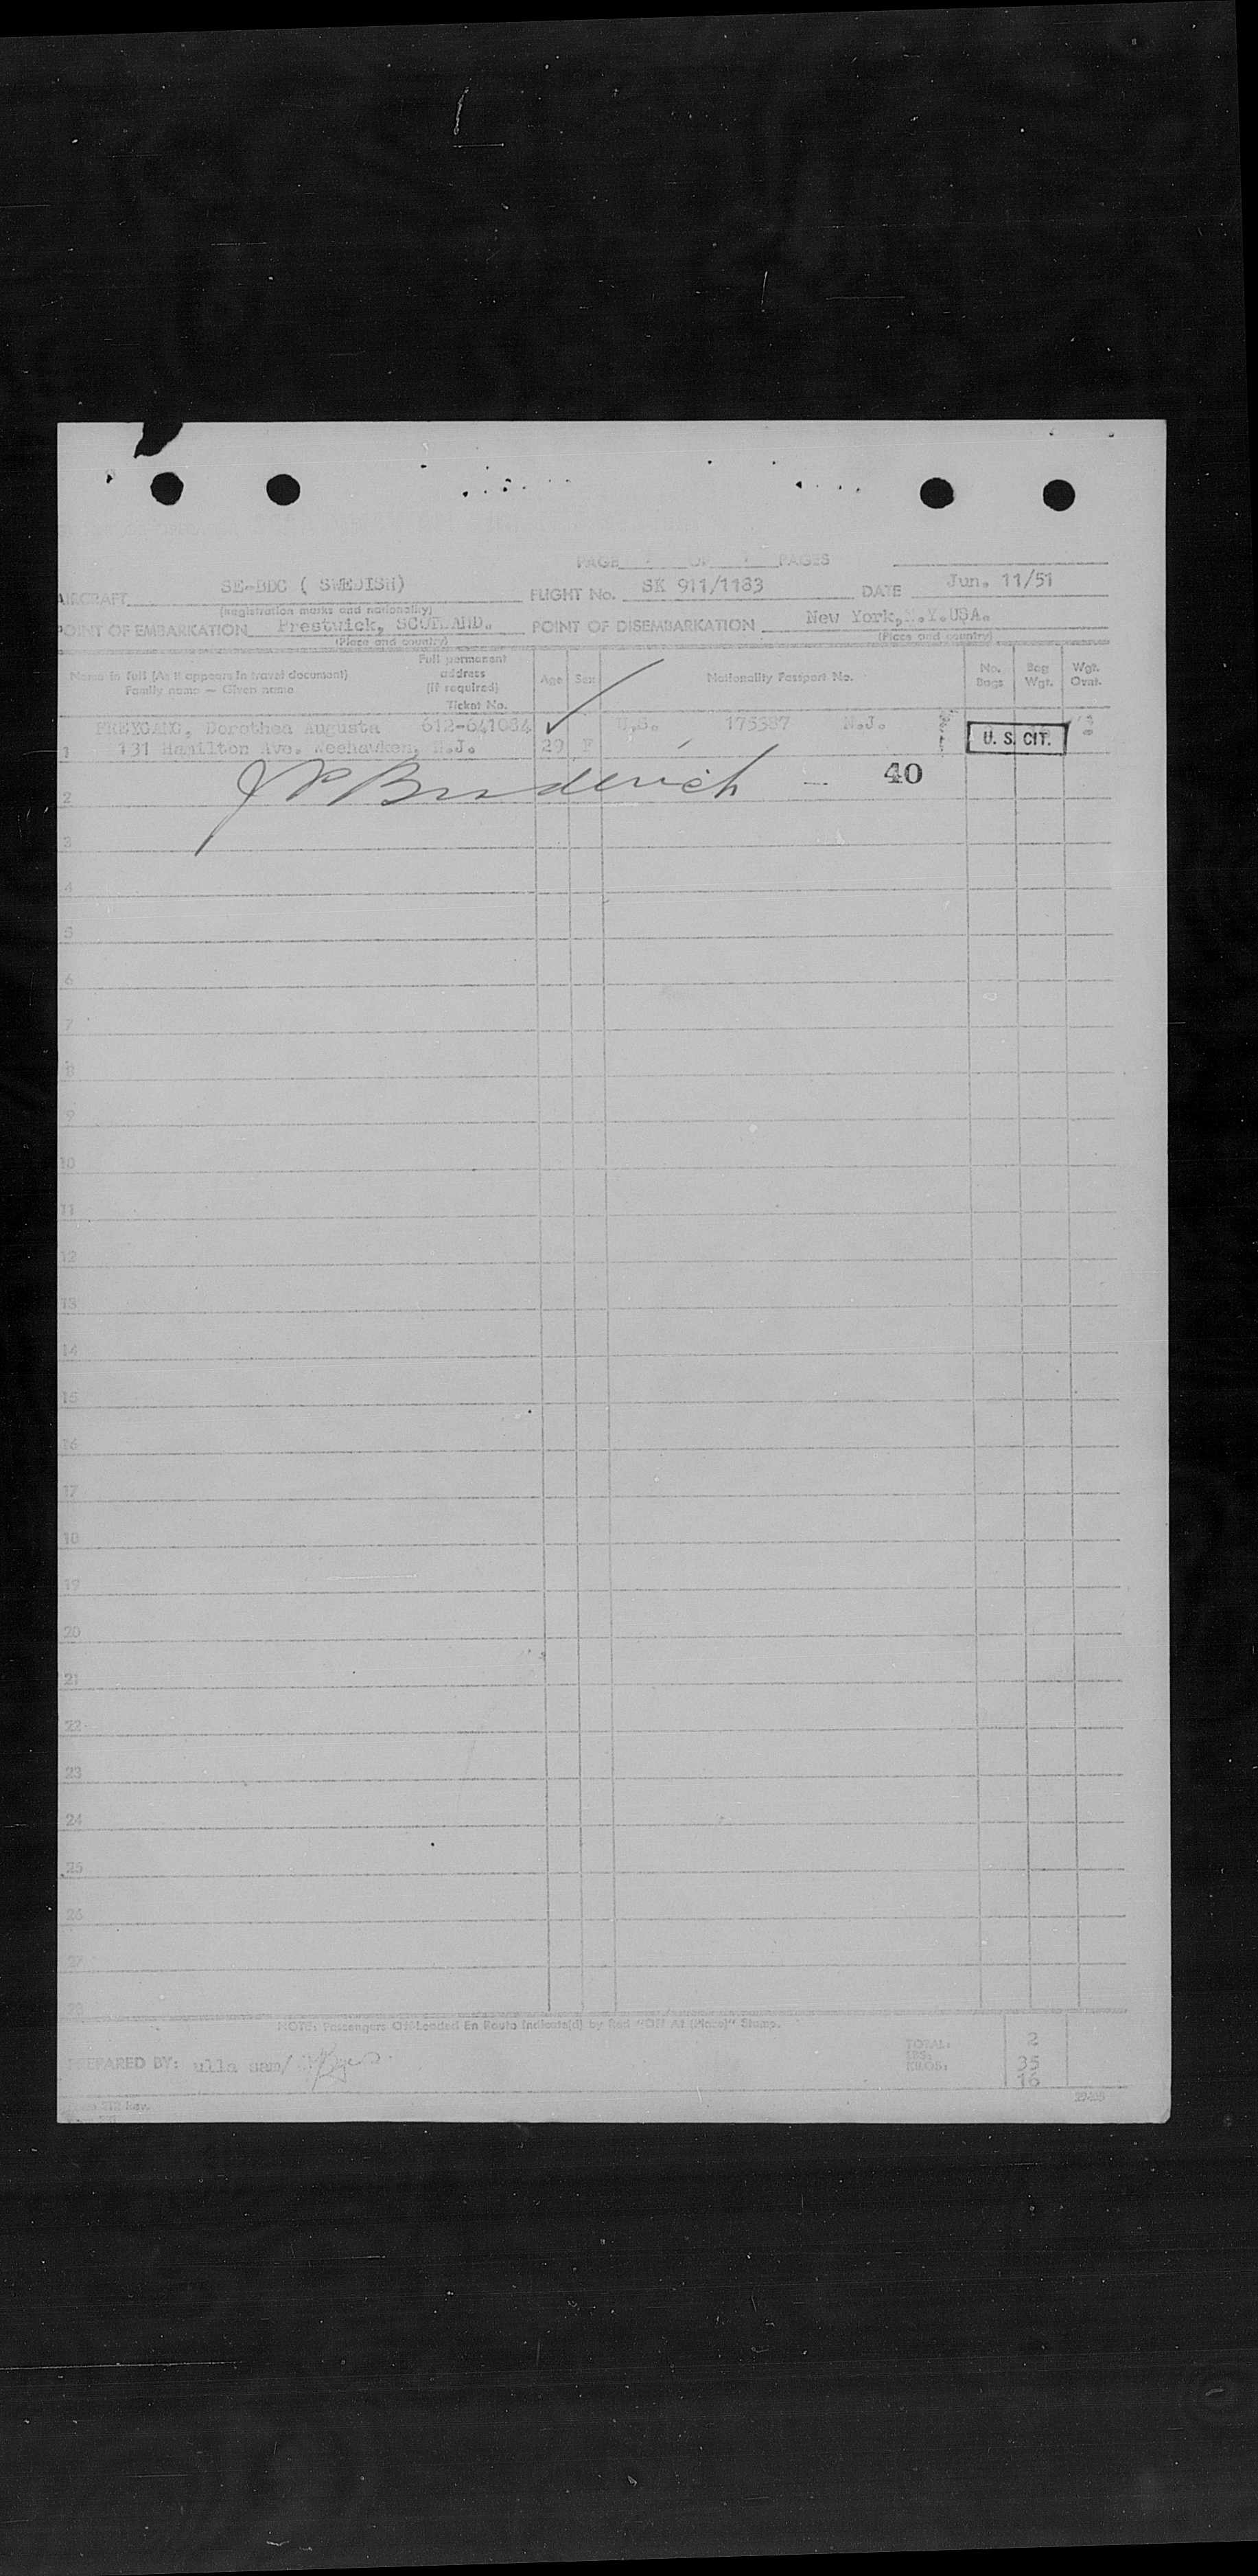 PAGE OF PAGES
AIRCRAFT SE-BDC ( SWEDISH) FLIGHT No. SK 911/1183 DATE Jun. 11/51
(Registration marks and nationality)
POINT OF EMBARKATION Prestwick, SCOTLAND. POINT OF DISEMBARKATION New York,N.Y.USA.
(Place and country) (Place and country)
Name in full (As it appears in travel document) Family name — Given name Full permanent address (if required) Ticket No. Age Sex Nationality Passport No. No. Bags Bag Wgt. Wgt. Ovnt.
FREYGANG, Dorothea Augusta 612-641084 U.S. 175387 N.J.
1 131 Hamilton Ave. Weehawken, N.J. 29 F U. S. CIT.
2 J P Broderick — 40
3
4
5
6
7
8
9
10
11
12
13
14
15
16
17
18
19
20
21
22
23
24
25
26
27
28
NOTE: Passengers Off-Loaded En Route Indicate(d) by Red "Off At (Place)" Stamp.
PREPARED BY: ulla sam/
TOTAL: 2
LBS: 35
KILOS: 16